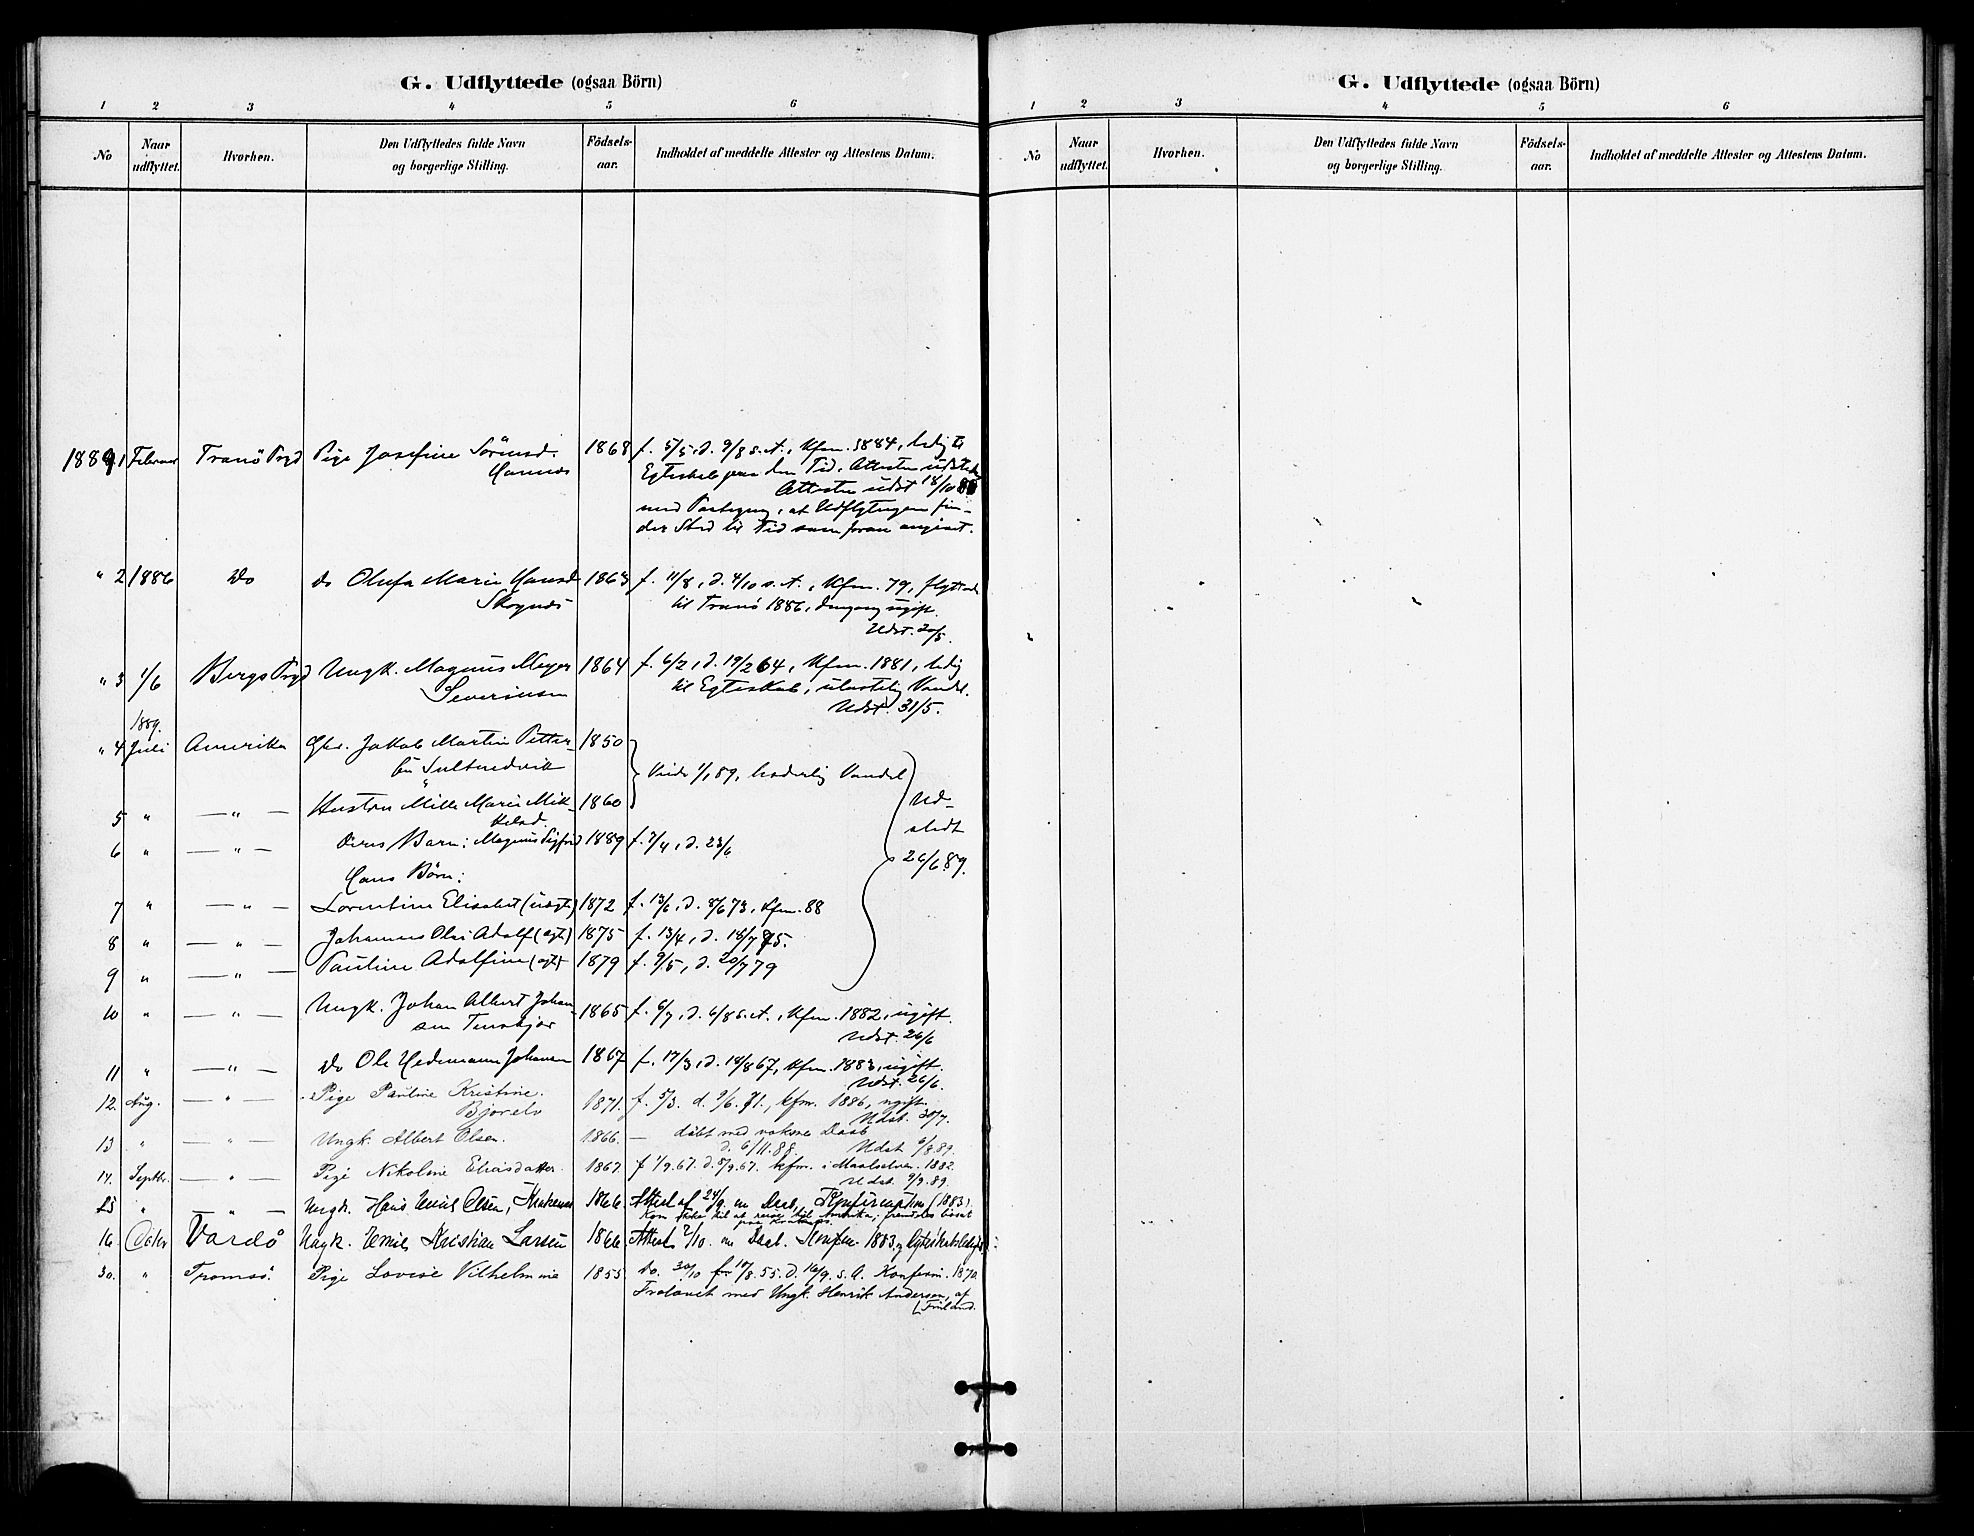 G. Udflyttede (ogsaa Börn)
1 2 3 4 5 6
No Naar udflyttet. Hvorhen. Den Udflyttedes fulde Navn og borgerlige Stilling. Födsels-aar. Indholdet af meddelte Attester og Attestens Datum.
1889 1 Februar Tranö Prgd Pige Josefine Sörensd. 1868 f. 5/5, d. 9/8 s. A., Kfm. 1884, ledig til
Egteskab paa den Tid. Attesten udst
Attesten udst 18/10
med Paategning, at Udflytningen fin-
der Sted til Tid som foran angivet.
" 2 1886 do do Olufa Marie Hansd 1863 f. 11/8, d. 4/10 s. A., Kfm. 79, flyttede
Skognes til Tranö 1886, dengang ugift.
Udst. 20/5.
" 3 1/6 Bergs Prgd Ungk. Magnus Meyer 1864 f. 6/2, d. 19/2 64, Kfm. 1881, ledig
Severinsen til Egteskab, ulastelig Vandel.
Udst. 31/5.
1889.
" 4 Juli Amerika Gbr. Jakob Martin Petter- 1850
Viede 1/1 89, hæderlig Vandel
5 " — " — Hustru Mille Marie Mik- 1860
kelsd.
Ud-
stedt
26/6 89.
6 " — " — Deres Barn: Magnus Sigfrid 1889 f. 7/4, d. 23/6
Hans Börn:
7 " — " — Lorentine Elisabet (uægt.) 1872 f. 13/6, d. 8/6 73, Kfm. 88
8 " — " — Johannes Olai Adolf (ægt.) 1875 f. 13/4, d. 18/7 75.
9 " — " — Pauline Adolfine (ægt.) 1879 f. 9/5, d. 20/7 79
10 " — " — Ungk. Johan Albert Johan- 1865 f. 6/7, d. 6/8 s. A., Kfm. 1882, ugift.
sen Udst. 26/6
11 " — " — do Ole Hedemann Johansen 1867 f. 17/3, d. 18/8 67, Kfm. 1883, ugift.
Udst. 26/6.
12. Aug. — " — Pige Pauline Kristine. 1871. f. 5/3. d. 9/6. 71., kfm. 1886, ugift.
Bjorelv Udst. 30/7.
13 " — " — Ungk. Albert Olsen. 1866. — döbt med voksnes Daab
d. 6/11. 88. Udst 6/8 89.
14. Septbr. — " — Pige Nikoline Eliasdatter. 1867. f 1/9. 67. d. 8/9. 67. kfm. i Maalselven. 1882.
Udst. 9/9. 89.
15 " — " — Ungk. Hans Emil Olsen, 1866. Attest af 24/9. om Daab, Konfirmation (1883).
Kom ikke til at reise til Amerika;
16. Octbr Vardö Ungk. Emil Kristian Larsen 1866. Attest 2/10. om Daab. Konfm. 1883,
30. " Tromsö. Pige Lovise Vilhelmine 1855. Do. 30/10 f. 17/8. 55. d. 16/9. s. A. Konferm. 1870.
Trolovet med Ungk. Henrik Andersen, af
Finland.
G. Udflyttede (ogsaa Börn)
1 2 3 4 5 6
No Naar udflyttet. Hvorhen. Den Udflyttedes fulde Navn og borgerlige Stilling. Födsels-aar. Indholdet af meddelte Attester og Attestens Datum.